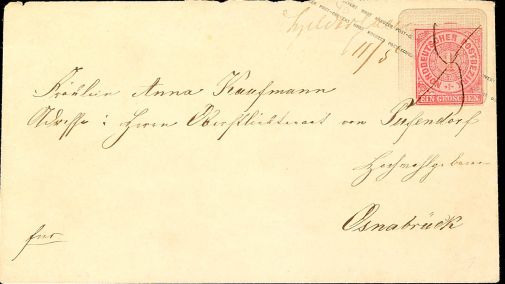 11/5
NORDDEUTSCHER POSTBEZIRK
EIN GROSCHEN
Fräulein Anna Kaufmann
Adresse: Herrn Oberstlieutenant von Pufendorf
Hochwohlgeboren
Osnabrück
frei